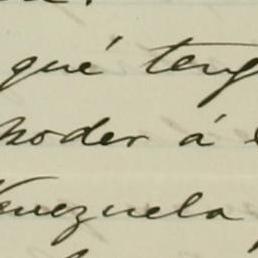 qué teng
poder á
Venezuela